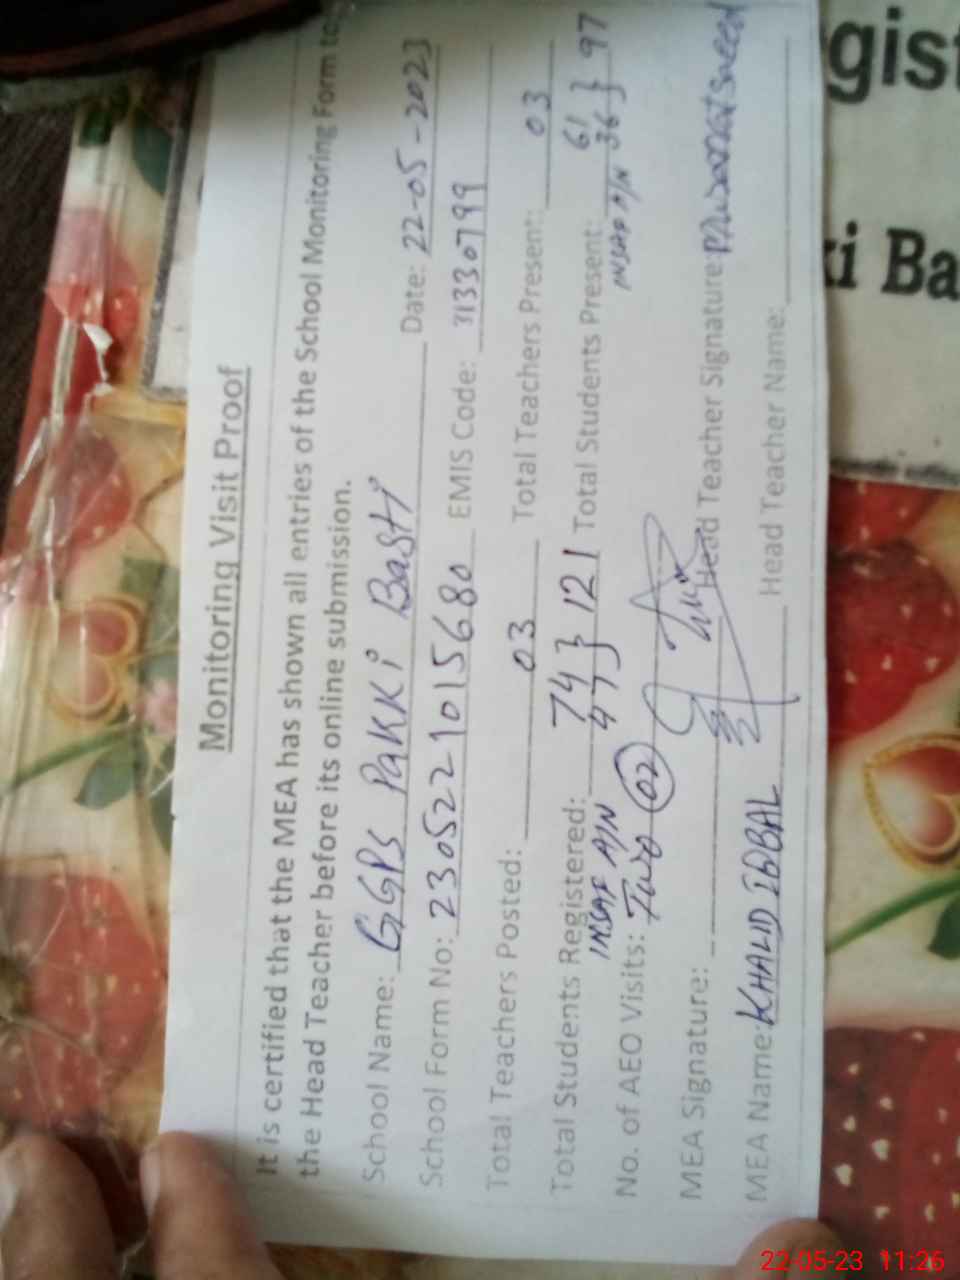 Monitoring Visit Proof
It is certified that the MEA has shown all entries of the School Monitoring Form to
the Head Teacher before its online submission.
School Name: GGPS Pakki Basti Date: 22-05-2023
School Form No: 2305221015680 EMIS Code: 31330799
Total Teachers Posted: 03 Total Teachers Present: 03
Total Students Registered: 74 } 121 Total Students Present: 61 } 97
INSAF A/N 47 INSAF A/N 36
No. of AEO Visits: Two 02
MEA Signature: Head Teacher Signature:
MEA Name: KHALID IQBAL Head Teacher Name:
gist
ki Ba
22-05-23 11:26